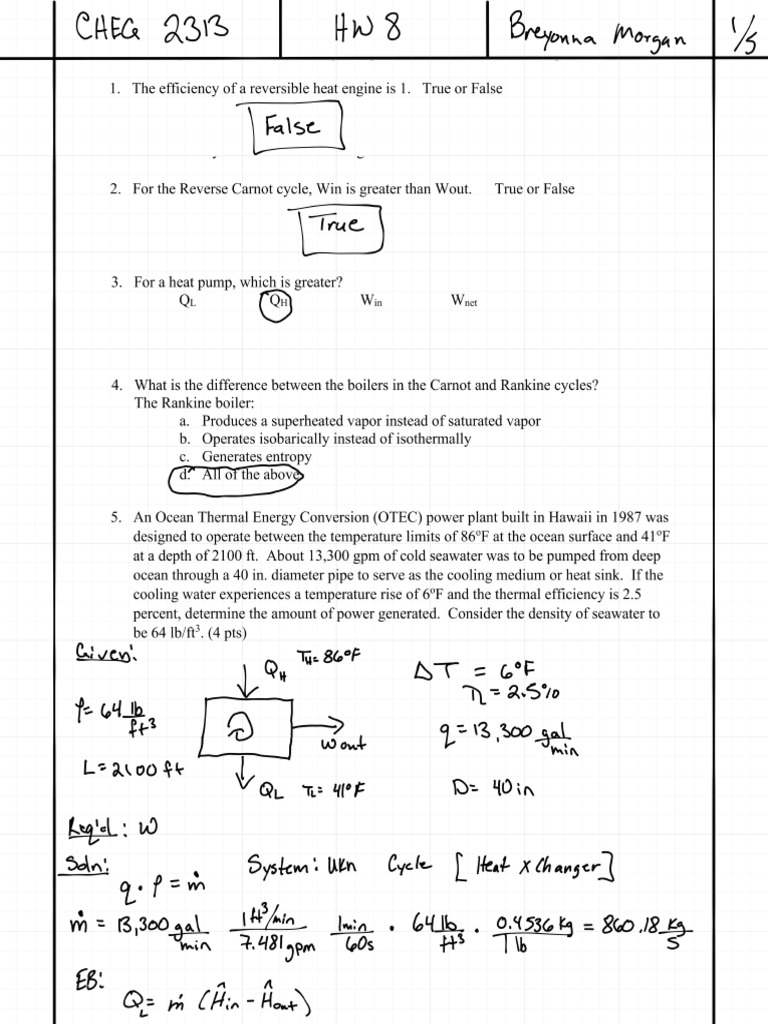 CHEG 2313 HW 8 Breyonna Morgan 1/5
1. The efficiency of a reversible heat engine is 1. True or False
False
2. For the Reverse Carnot cycle, Win is greater than Wout. True or False
True
3. For a heat pump, which is greater?
QL QH Win Wnet
4. What is the difference between the boilers in the Carnot and Rankine cycles?
The Rankine boiler:
a. Produces a superheated vapor instead of saturated vapor
b. Operates isobarically instead of isothermally
c. Generates entropy
d. All of the above
5. An Ocean Thermal Energy Conversion (OTEC) power plant built in Hawaii in 1987 was
designed to operate between the temperature limits of 86ºF at the ocean surface and 41ºF
at a depth of 2100 ft. About 13,300 gpm of cold seawater was to be pumped from deep
ocean through a 40 in. diameter pipe to serve as the cooling medium or heat sink. If the
cooling water experiences a temperature rise of 6ºF and the thermal efficiency is 2.5
percent, determine the amount of power generated. Consider the density of seawater to
be 64 lb/ft³. (4 pts)
Given:
QH TH= 86°F ΔT = 6°F
η = 2.5%
ρ= 64 lb/ft³
q = 13,300 gal/min
Wout
L= 2100 ft
QL TL= 41°F D= 40in
Req'd: W
Soln: System: Ukn Cycle [Heat X Changer]
q · ρ = ṁ
ṁ = 13,300 gal/min 1 ft³/min / 7.481 gpm 1min/60s · 64 lb/ft³ · 0.4536 kg / 1 lb = 860.18 kg/s
EB:
QL= ṁ (Ĥin - Ĥout)